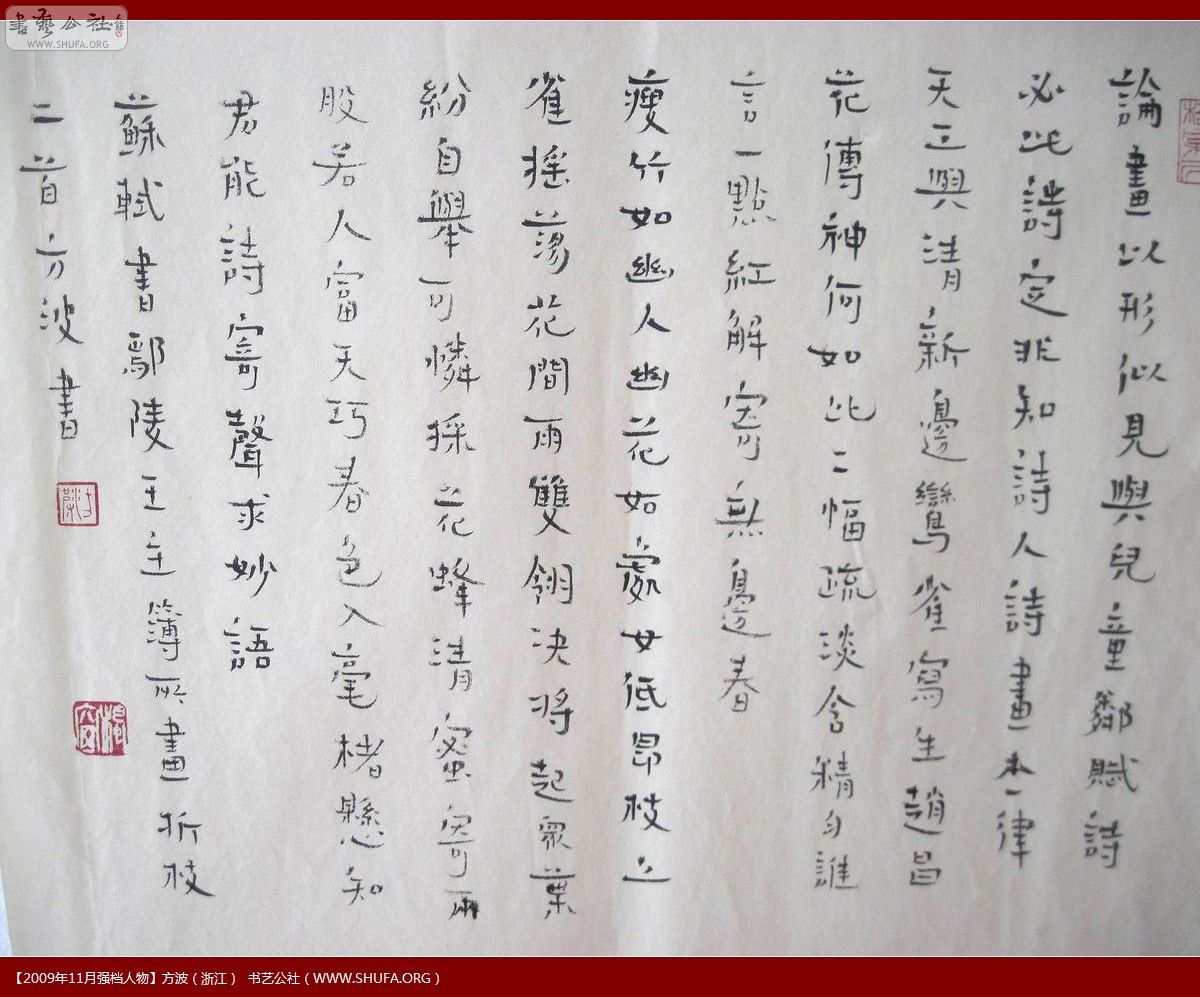 書藝公社
WWW.SHUFA.ORG
論畫以形似見與兒童鄰賦詩
必此詩定非知詩人詩畫本一律
天工與清新邊鸞雀寫生趙昌
花傳神何如此二幅疏淡含精勻誰
言一點紅解寄無邊春
瘦竹如幽人幽花如處女低昂枝上
雀搖蕩花間雨雙翎决將起衆葉
紛自舉可憐採花蜂清蜜寄兩
股若人富天巧春色入毫楮懸知
君能詩寄聲求妙語
蘇軾書鄢陵王主簿所畫折枝
二首方波書
【2009年11月强档人物】方波（浙江） 书艺公社（WWW.SHUFA.ORG）